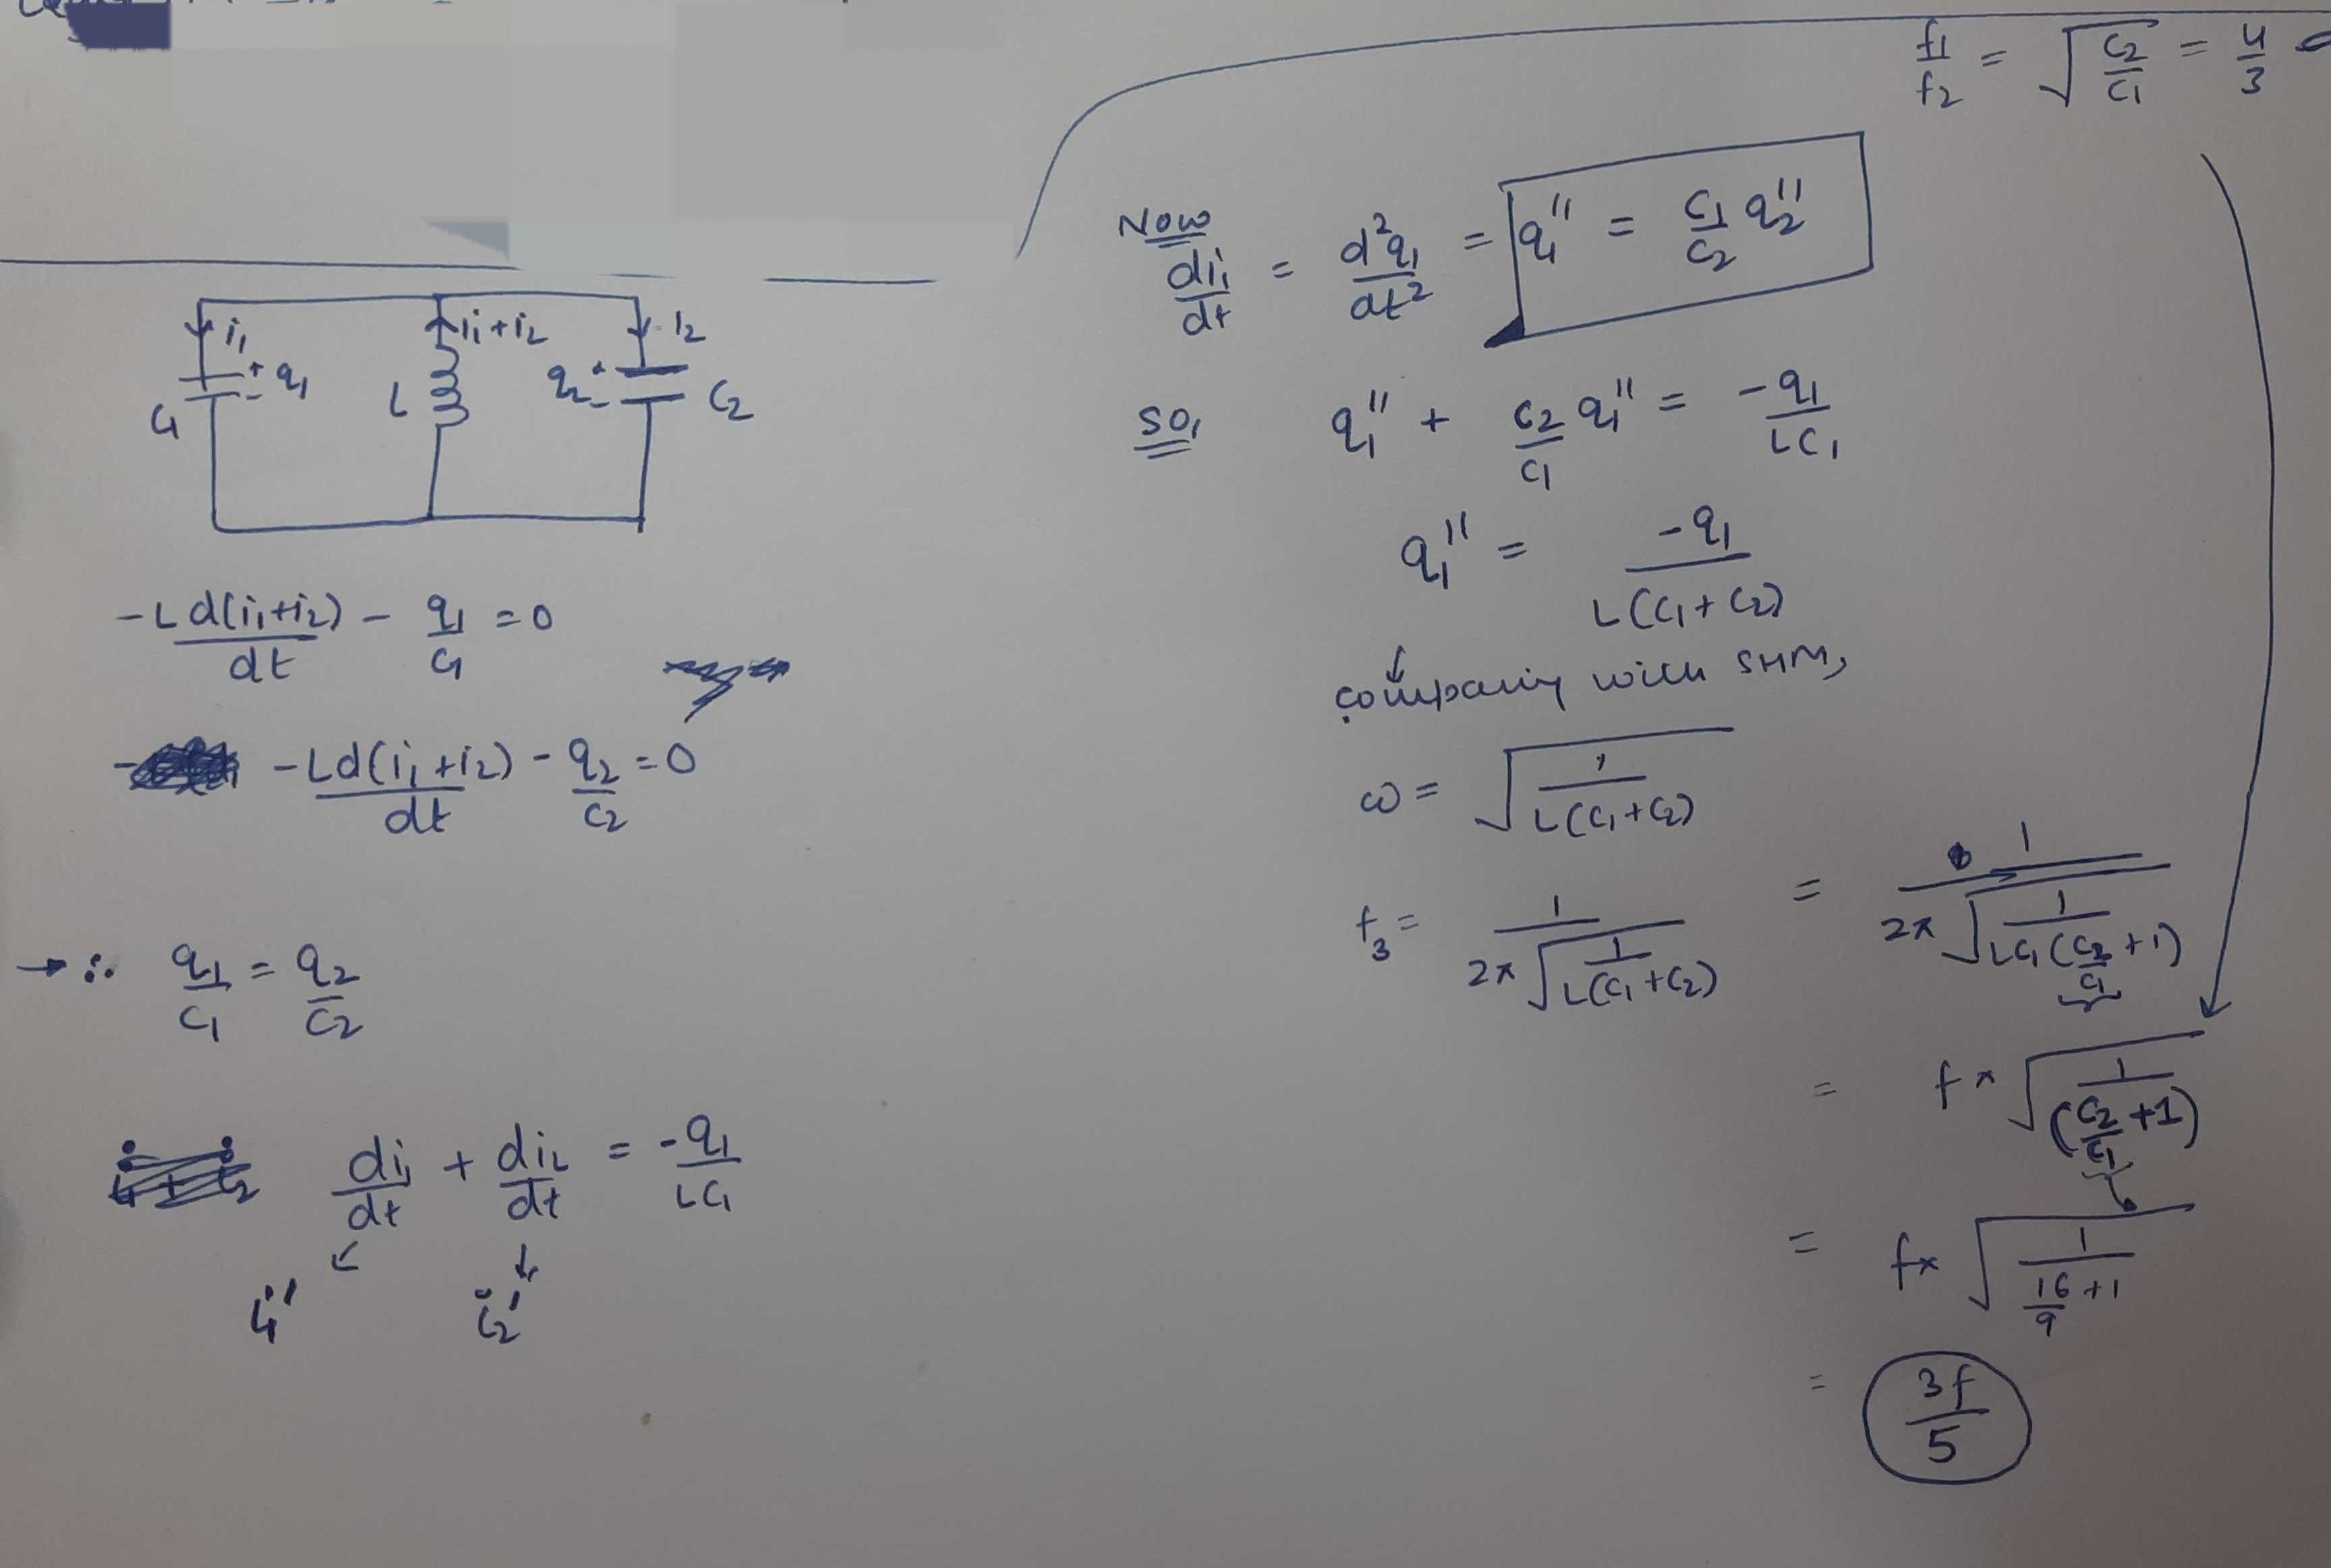 f1/f2 = √(C2/C1) = 4/3
i1
i1+i2
i2
+ q1
-
L
q2 +
-
C1
C2
-L d(i1+i2)/dt - q1/C1 = 0
-L d(i1+i2)/dt - q2/C2 = 0
→ ∴ q1/C1 = q2/C2
di1/dt + di2/dt = -q1/LC1
i1' i2'
Now
di1/dt = d²q1/dt² = q1'' = C1/C2 q2''
SO, q1'' + C2/C1 q1'' = -q1/LC1
q1'' = -q1/L(C1+C2)
comparing with SHM,
ω = √(1/L(C1+C2))
f3 = 1/2π√(1/L(C1+C2)) = 1/2π√(1/LC1(C2/C1+1))
= f×√(1/(C2/C1+1))
= f×√(1/(16/9+1))
= 3f/5